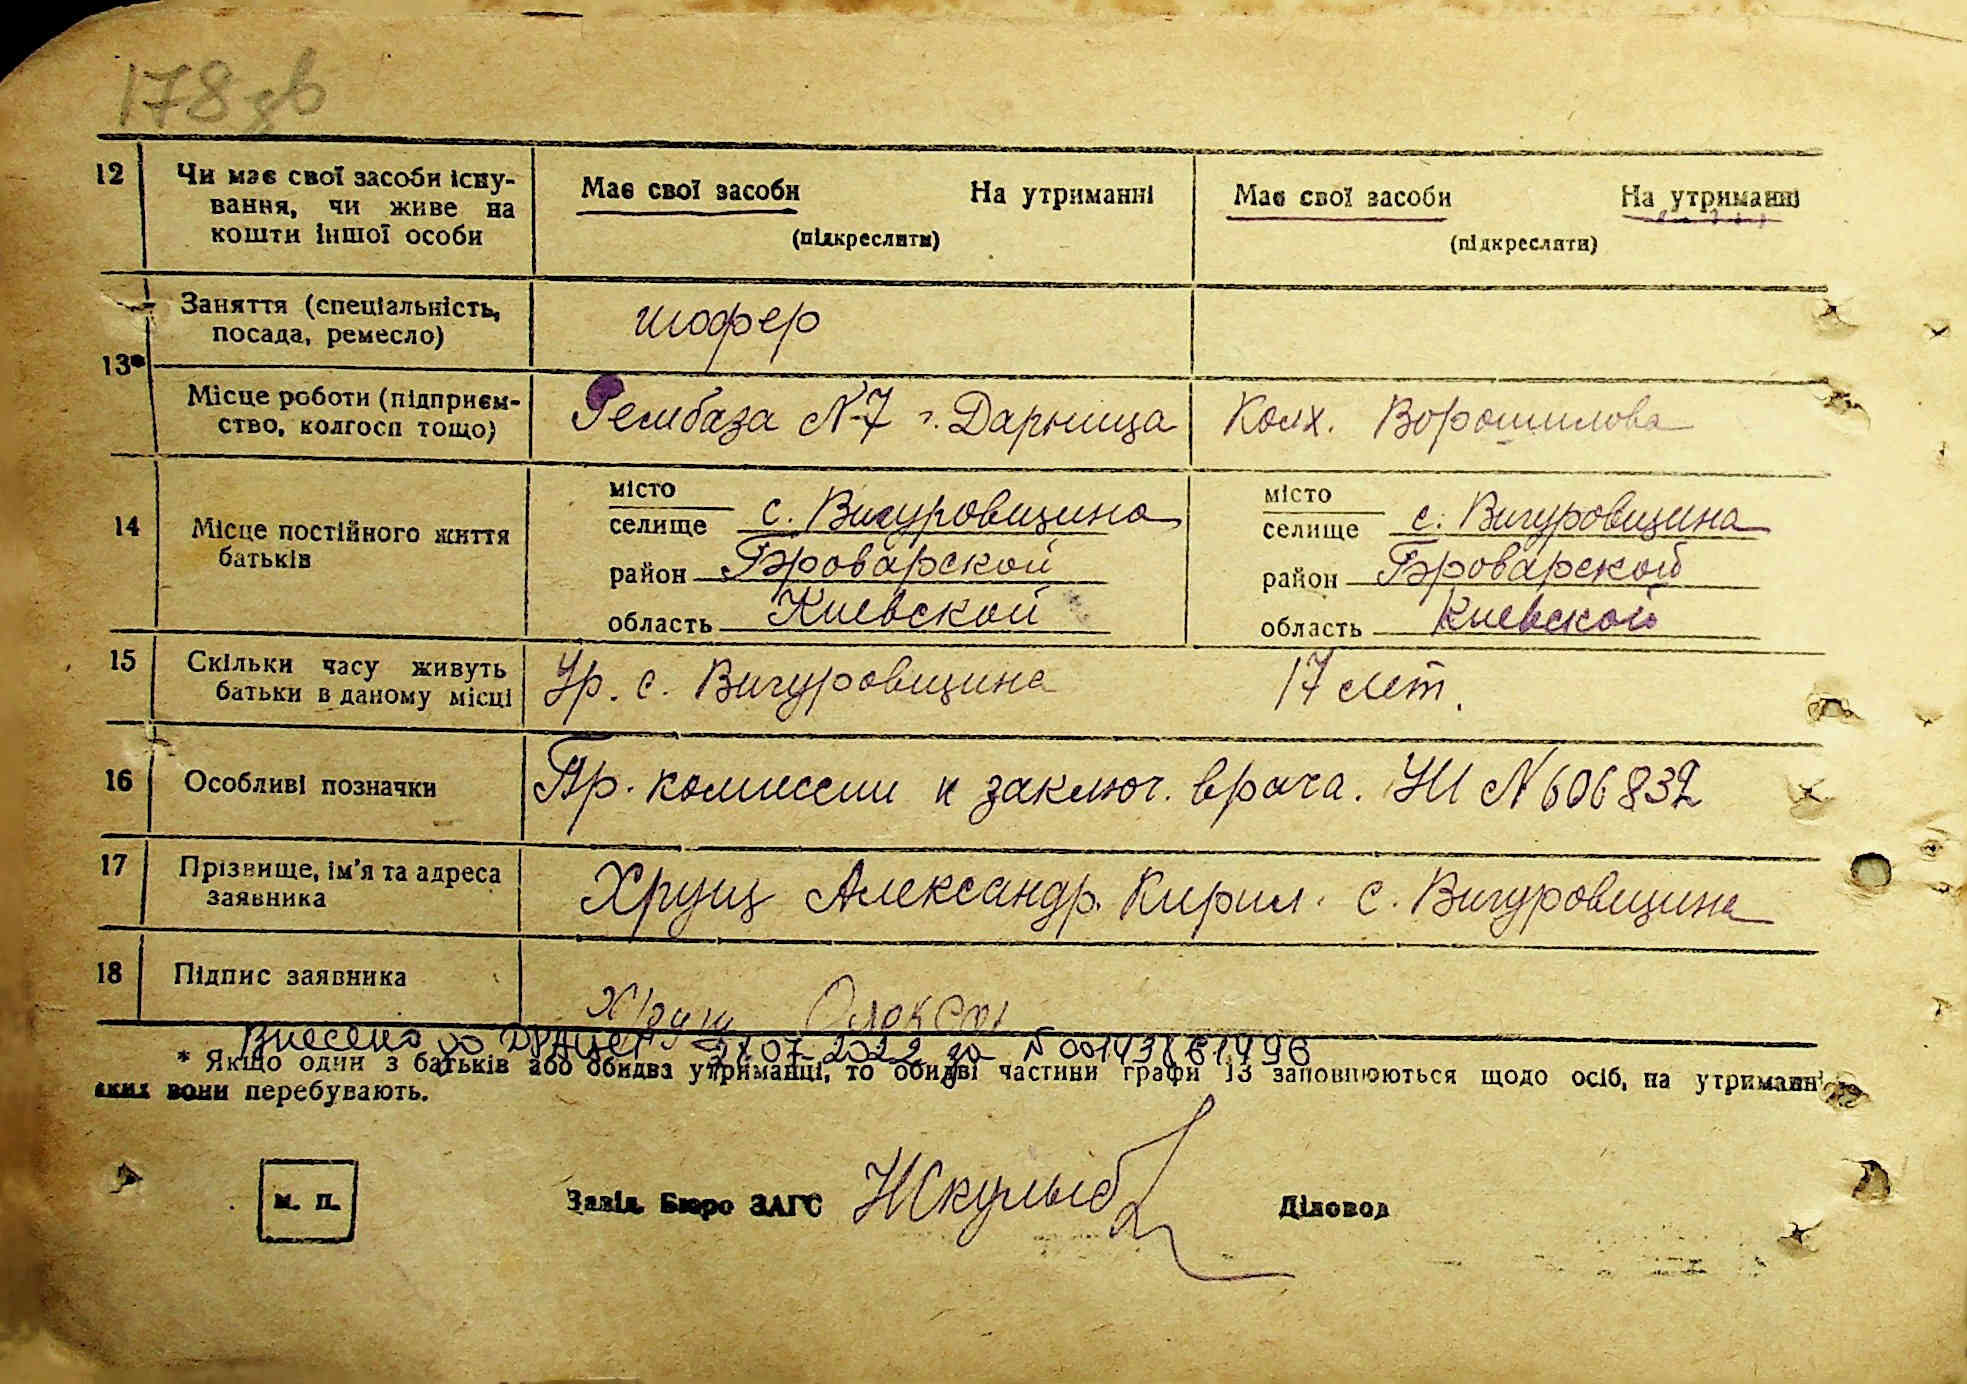 178 зв
12 Чи має свої засоби існу-
вання, чи живе на
кошти іншої особи
Має свої засоби На утриманні
(підкреслити)
Має свої засоби На утриманні
(підкреслити)
13*
Заняття (спеціальність,
посада, ремесло)
шофер
Місце роботи (підприєм-
ство, колгосп тощо)
Рембаза N-7 г. Дарница
Колх. Ворошилова
14 Місце постійного життя
батьків
місто
селище с. Вигуровщина
район Броварской
область Киевской
місто
селище с. Вигуровщина
район Броварской
область Киевской
15 Скільки часу живуть
батьки в даному місці
Ур. с. Вигуровщина 17 лет.
16 Особливі позначки
Пр. комиссии и заключ. врача. УШ N 606832
17 Прізвище, ім'я та адреса
заявника
Хрущ Александр Кирил. с. Вигуровщина
18 Підпис заявника
Хрущ
Внесено до ДРАЦСГ 28.07.2022 за N 00143861496
* Якщо один з батьків або обидва утриманці, то обидві частини графи 13 заповнюються щодо осіб, на утриманні
яких вони перебувають.
м. п.
Завід. Бюро ЗАГС
Діловод